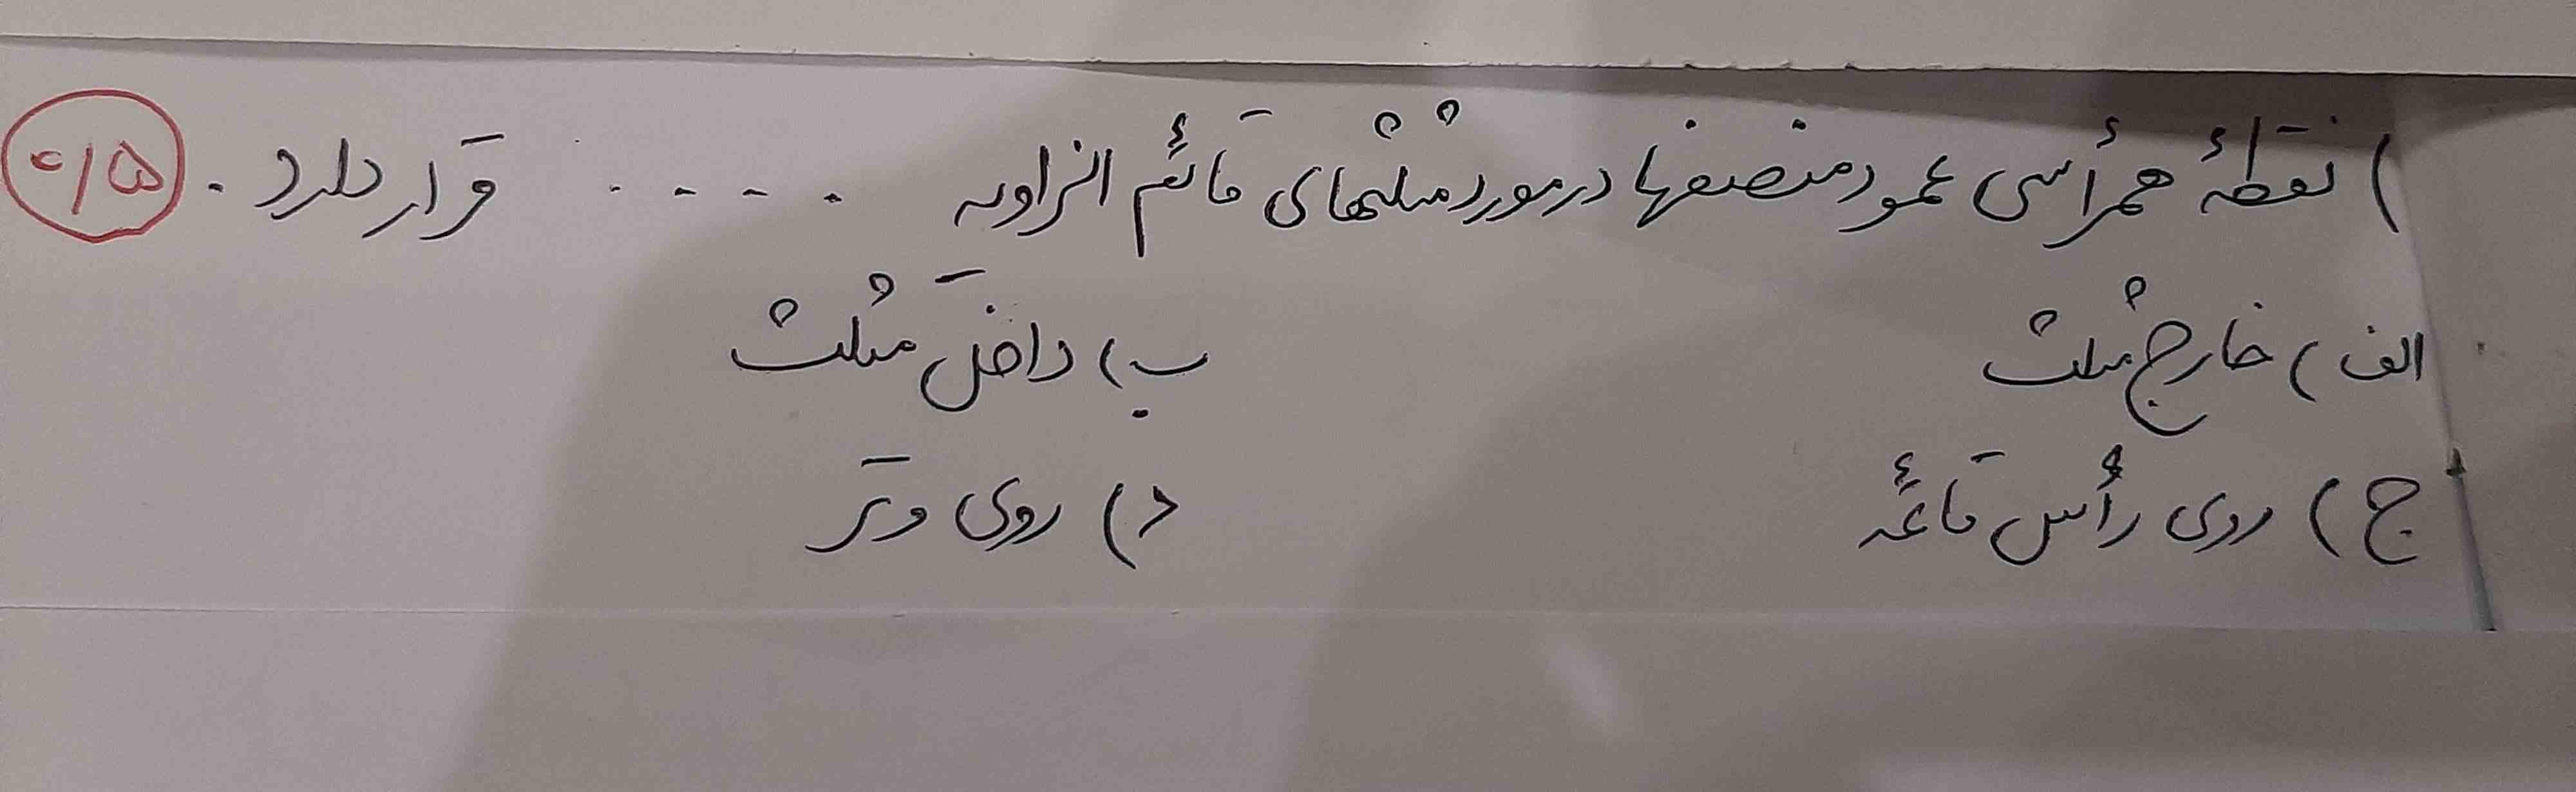 ) نقطهٔ همرأسی عمودمنصفها در مورد مثلثهای قائم الزاویه ..... قرار دارد. ۰/۵
الف) خارج مثلث ب) داخل مثلث
ج) روی رأس قائمه د) روی وتر